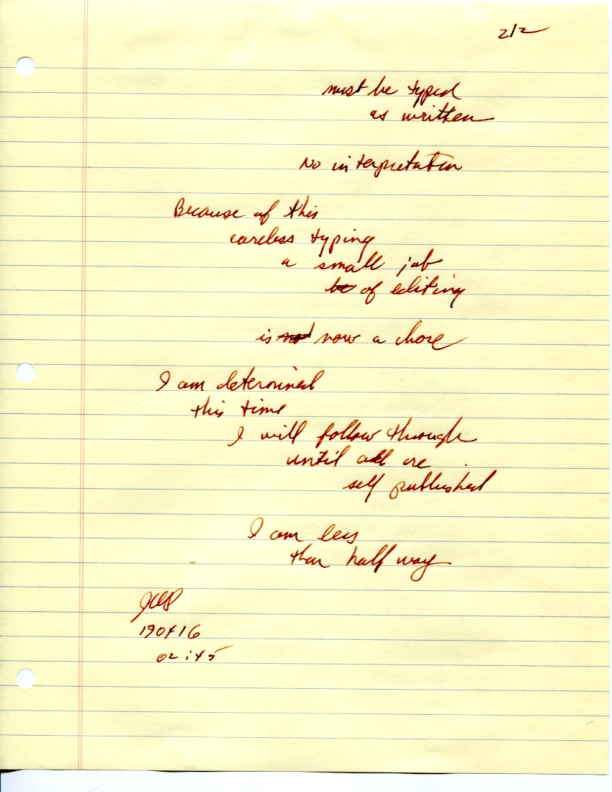 2/2
must be typed
as written
No interpretation
Because of this
careless typing
a small job
of editing
is now a chore
I am determined
this time
I will follow through
until all are
self published
I am less
than half way
190416
02:45